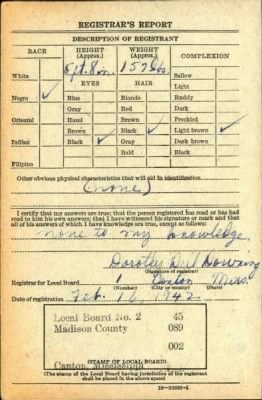 REGISTRAR'S REPORT
DESCRIPTION OF REGISTRANT
RACE
HEIGHT (Approx.)
WEIGHT (Approx.)
COMPLEXION
White
5 ft. 8 in
157 lbs
Sallow
EYES
HAIR
Light
Negro ✓
Blue
Blonde
Ruddy
Gray
Red
Dark
Oriental
Hazel
Brown
Freckled
Brown
Black ✓
Light brown ✓
Indian
Black ✓
Gray
Dark brown
Bald
Black
Filipino
Other obvious physical characteristics that will aid in identification
(none)
I certify that my answers are true; that the person registered has read or has had
read to him his own answers; that I have witnessed his signature or mark and that
all of his answers of which I have knowledge are true, except as follows:
none to my knowledge
Dorothy Dell
(Signature of registrar)
Registrar for Local Board 2 Canton Miss.
(Number) (City or county) (State)
Date of registration Feb. 16, 1942
Local Board No. 2 45
Madison County 089
002
Canton, Mississippi
(STAMP OF LOCAL BOARD)
(The stamp of the Local Board having jurisdiction of the registrant
shall be placed in the above space)